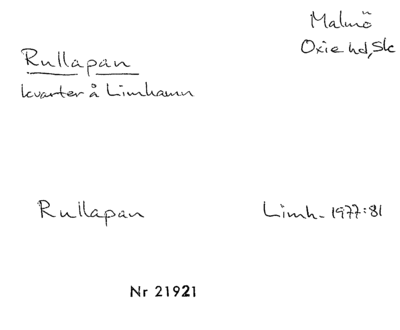 Malmö
Oxie hd, Sk
Rullapan
kvarter å Limhamn
Rullapan
Limh. 1977:81
Nr 21921